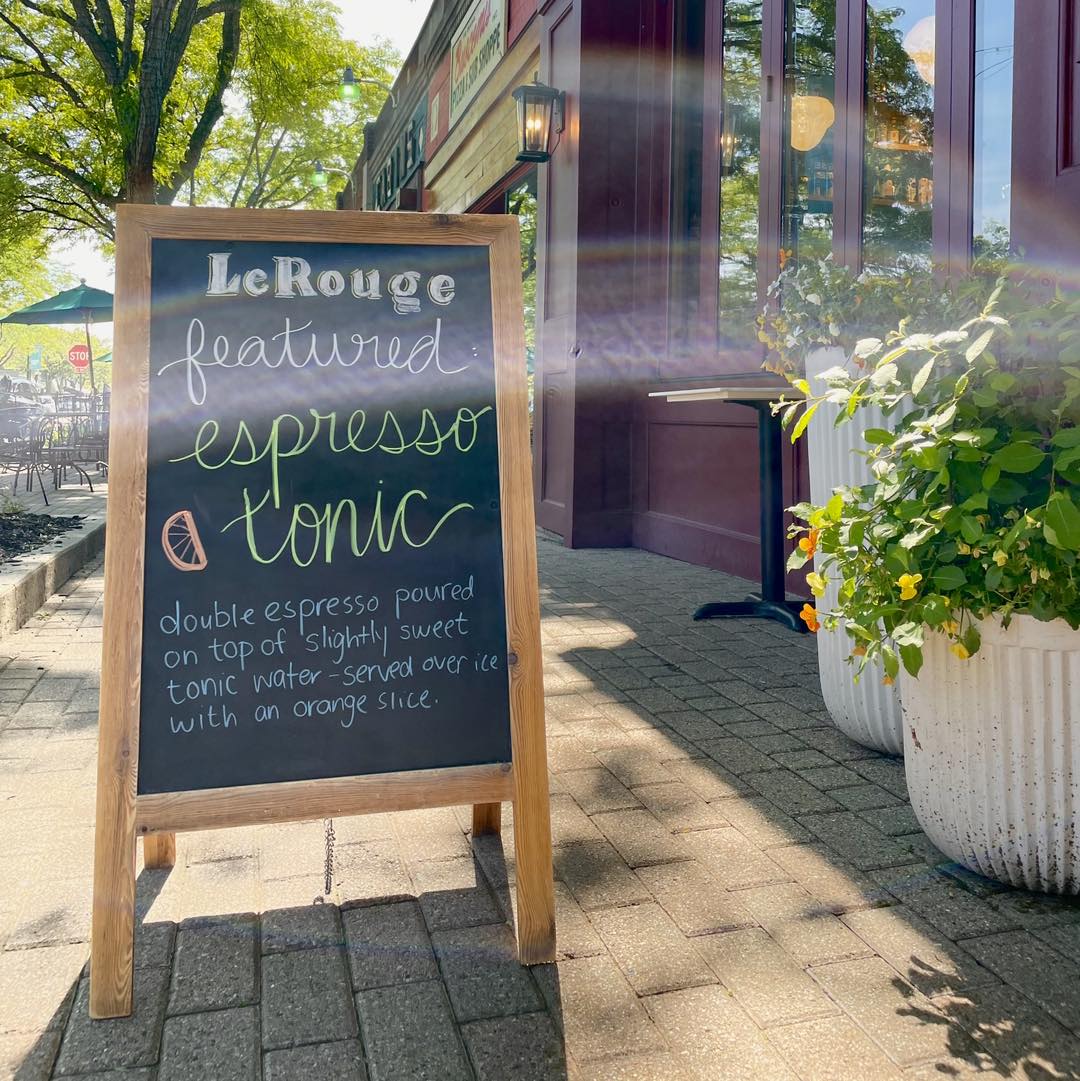 LeRouge
featured:
espresso
tonic
double espresso poured
on top of slightly sweet
tonic water - served over ice
with an orange slice.
STOP